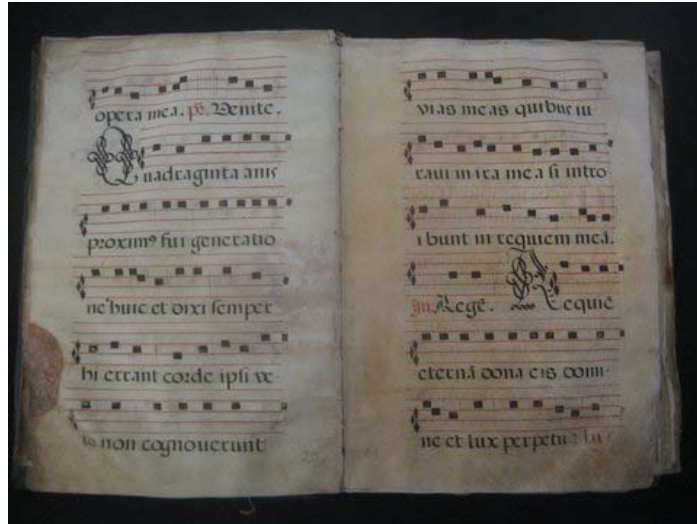 opera mea. ps. Venite.
Quadraginta anis
proxim⁹ fui generatio
ne huic et dixi semper
hi errant corde ipsi ve-
to non cognouerunt
vias meas quibus iu
raui in ira mea si intro
ibunt in requiem meā.
in. Regē. Requiē
eternā dona eis domi-
ne et lux perpetu